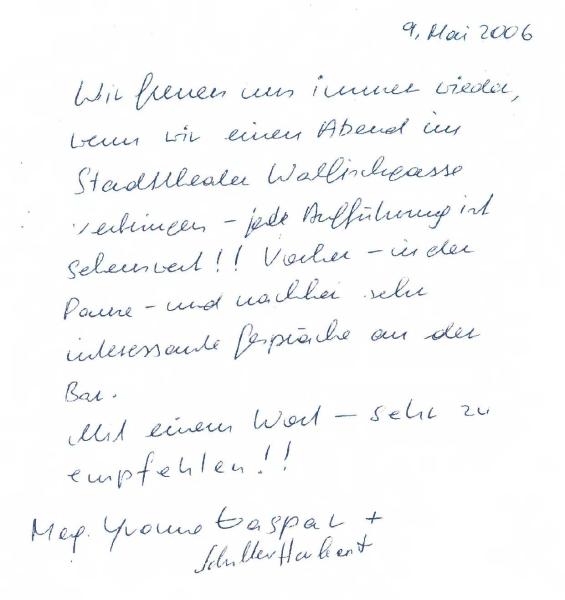 9. Mai 2006
Wir freuen uns immer wieder,
wenn wir einen Abend im
Stadttheater Walfischgasse
verbringen - jede Aufführung ist
sehenswert!! Vorher - in der
Pause - und nachher sehr
interessante Gespräche an der
Bar.
Mit einem Wort - sehr zu
empfehlen!!
Mag. Yvonne Gaspar +
Schiller Herbert